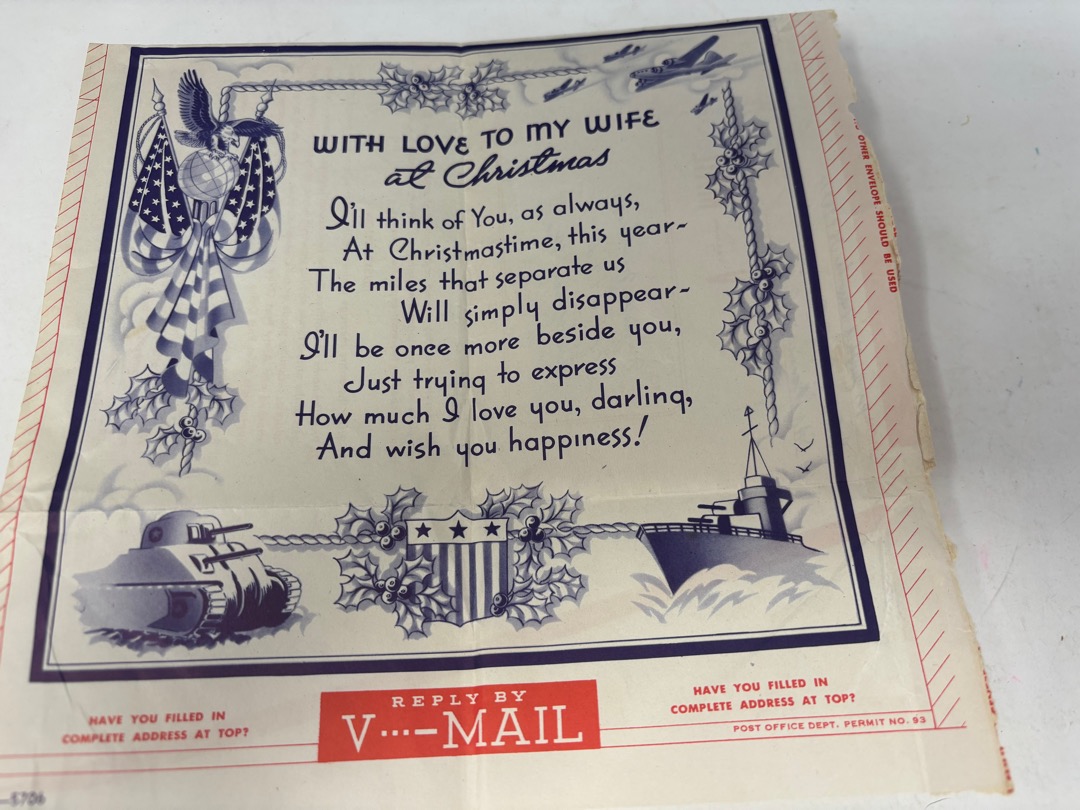 WITH LOVE TO MY WIFE
at Christmas
I'll think of You, as always,
At Christmastime, this year~
The miles that separate us
Will simply disappear~
I'll be once more beside you,
Just trying to express
How much I love you, darling,
And wish you happiness!
OTHER ENVELOPE SHOULD BE USED
HAVE YOU FILLED IN
COMPLETE ADDRESS AT TOP?
REPLY BY
V···—MAIL
HAVE YOU FILLED IN
COMPLETE ADDRESS AT TOP?
POST OFFICE DEPT. PERMIT NO. 93
—5706